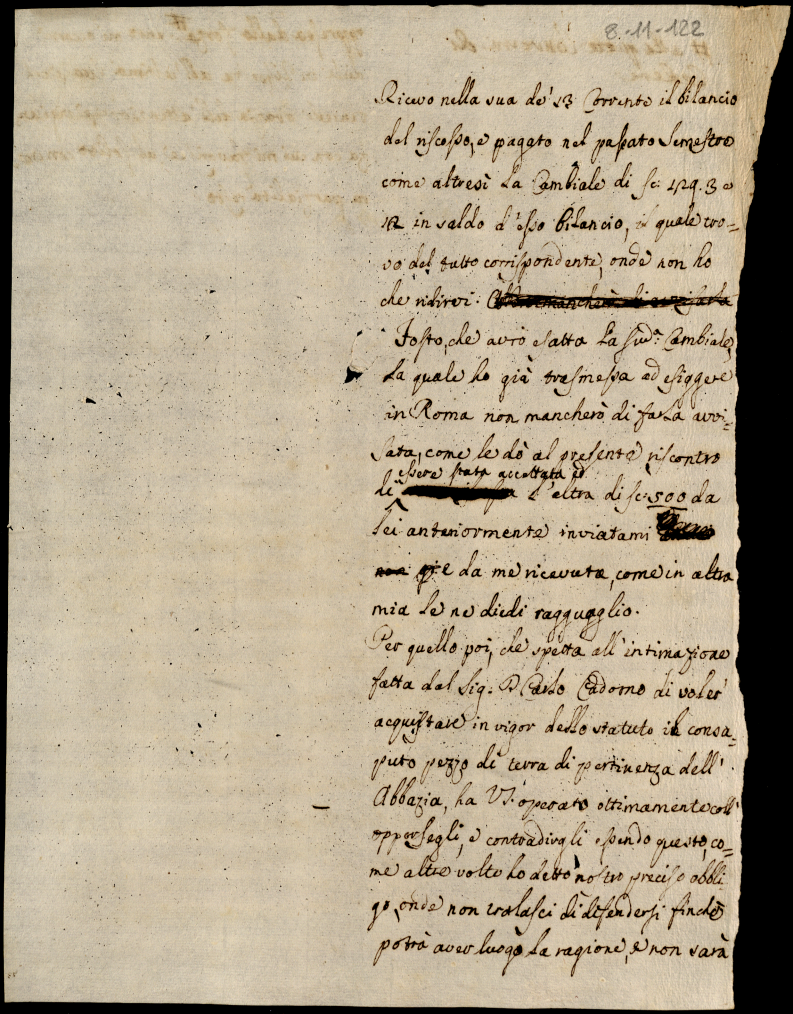 8-11-122
Ricevo nella sua de' 13 Corrente il bilancio
del riscosso, e pagato nel passato Semestre
come altresì la Cambiale di sc: 129. 3 e
12 in saldo d'esso bilancio, il quale tro=
vo del tutto corrispondente, onde non ho
che ridirvi.
Tosto, che avrò esatta la sud.ª Cambiale,
la quale ho già trasmessa ad esiggere
in Roma non mancherò di farla avvi=
sata, come le dò al presente riscontro
essere stata accettata
di l'altra di sc: 500 da
lei anteriormente inviatami
non e da me ricevuta, come in altra
mia le ne diedi ragguaglio.
Per quello poi, che spetta all'intimazione
fatta dal Sig. D Carlo Cadorno di voler
acquistare in vigor dello statuto il consa=
puto pezzo di terra di pertinenza dell'
Abbazia, ha VS. operato ottimamente coll'
opporsegli, e contradirgli essendo questo, co=
me altre volte ho detto nostro preciso obbli
go, onde non tralasci di difendersi finchè
potrà aver luogo la ragione, e non sarà